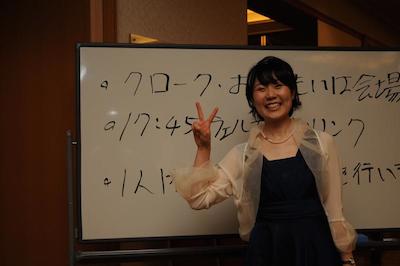 ・クローク・お いは会場
・17:45 ウェル リンク
・1人 行い